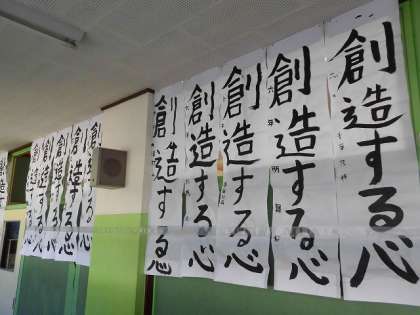 創造する心
創造する心
六年
創造する心
創造する心
創造する心
創造する心
創造する心
創造する心
創造する心
創造する心
創造